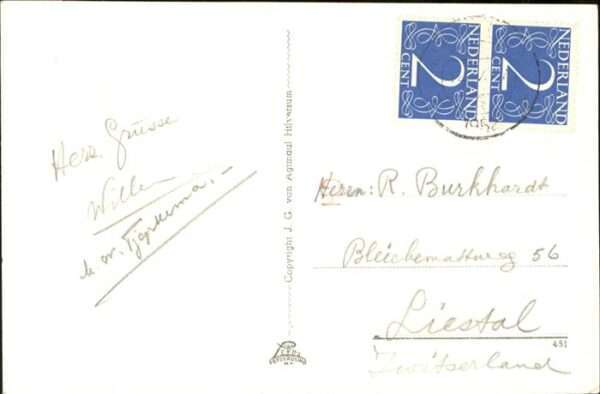 NEDERLAND
2
CENT
NEDERLAND
2
CENT
Herz. Grüsse
Willem
Copyright J. G. van Agtmaal Hilversum
Herrn: R. Burkhardt
Bleichemattweg 56
Liestal
Zwitserland
451